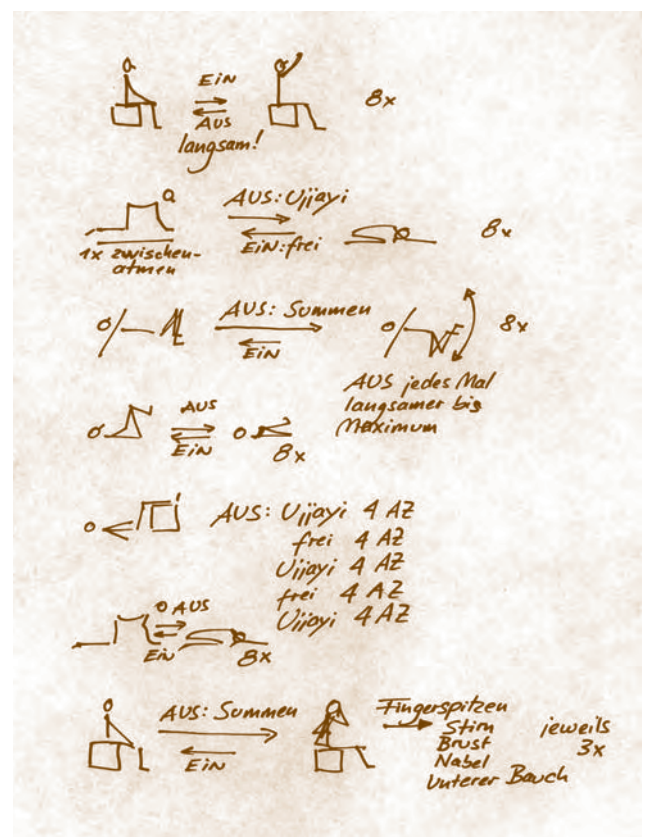 EiN
AUS
langsam!
8x
AUS: Ujjayi
EiN: frei
1x zwischen-
atmen
8x
AUS: Summen
EiN
8x
AUS jedes Mal
langsamer bis
Maximum
AUS
EiN
8x
AUS: Ujjayi 4 AZ
frei 4 AZ
Ujjayi 4 AZ
frei 4 AZ
Ujjayi 4 AZ
AUS
EiN
8x
AUS: Summen
EiN
Fingerspitzen
Stirn
Brust
Nabel
Unterer Bauch
jeweils
3x